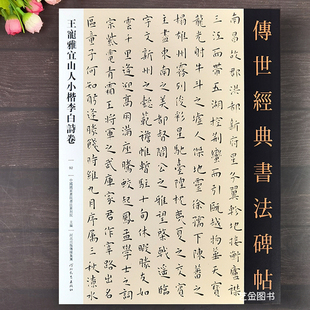 傳世經典書法碑帖
南昌故郡洪都新府星分翼軫地接衡廬襟
三江而帶五湖控蠻荊而引甌越物華天寶
龍光射牛斗之墟人傑地靈徐孺下陳蕃之
榻雄州霧列俊彩星馳臺隍枕夷夏之交賓
主盡東南之美都督閻公之雅望棨戟遙臨
宇文新州之懿範襜帷暫駐十旬休暇勝友如
雲千里逢迎高朋滿座騰蛟起鳳孟學士之詞
宗紫電青霜王將軍之武庫家君作宰路出名
區童子何知躬逢勝餞時維九月序屬三秋潦水
王寵雅宜山人小楷李白詩卷
金图书